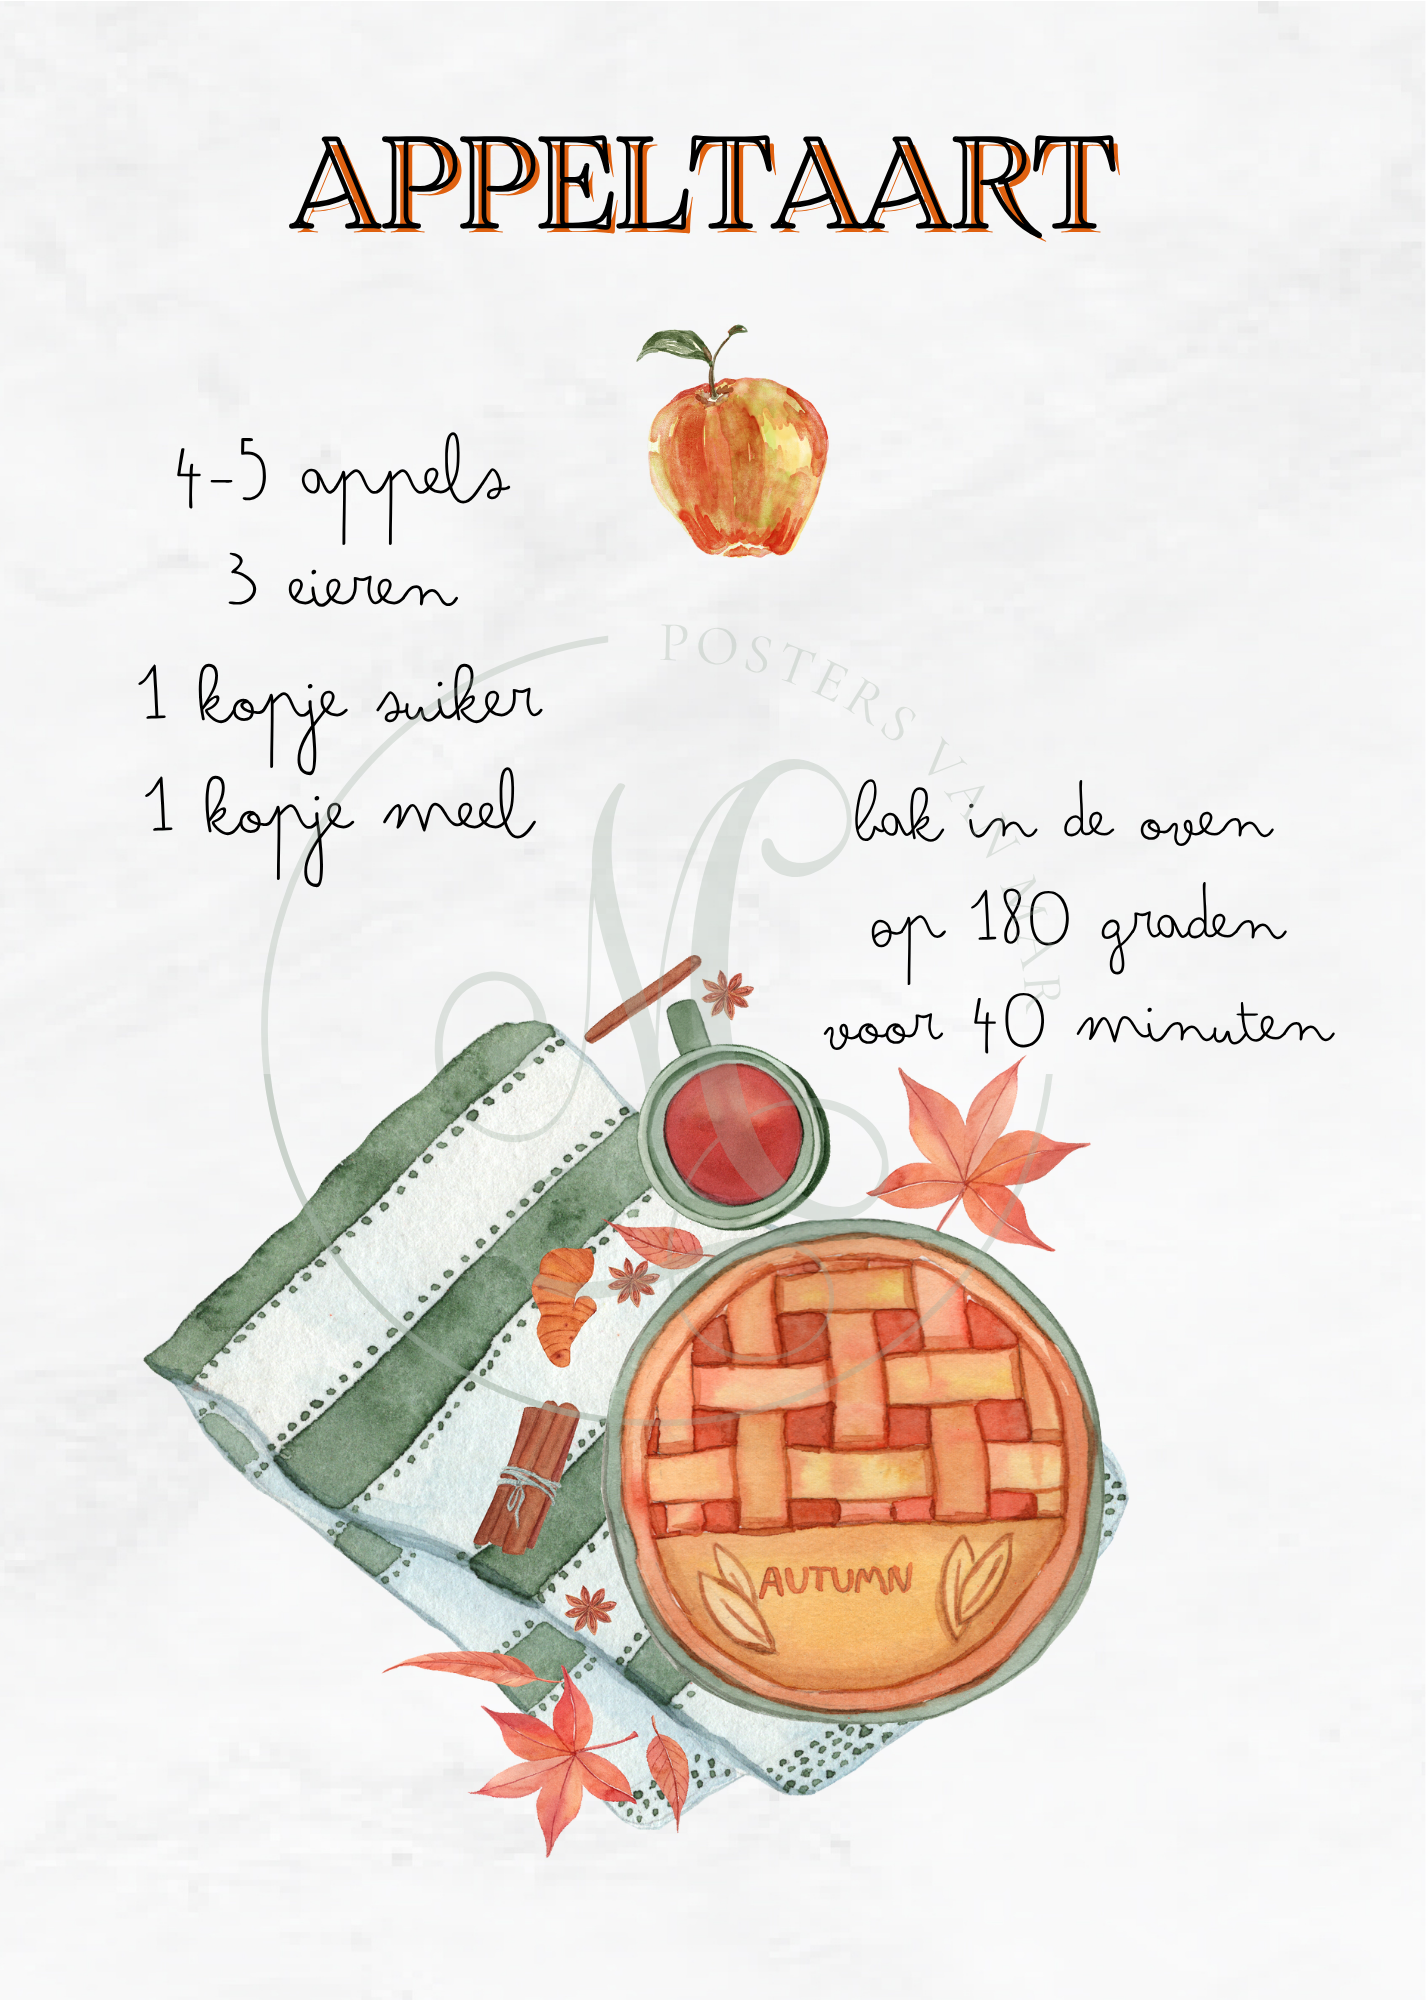 APPELTAART
4-5 appels
3 eieren
1 kopje suiker
1 kopje meel
bak in de oven
op 180 graden
voor 40 minuten
POSTERS VAN MAR
AUTUMN